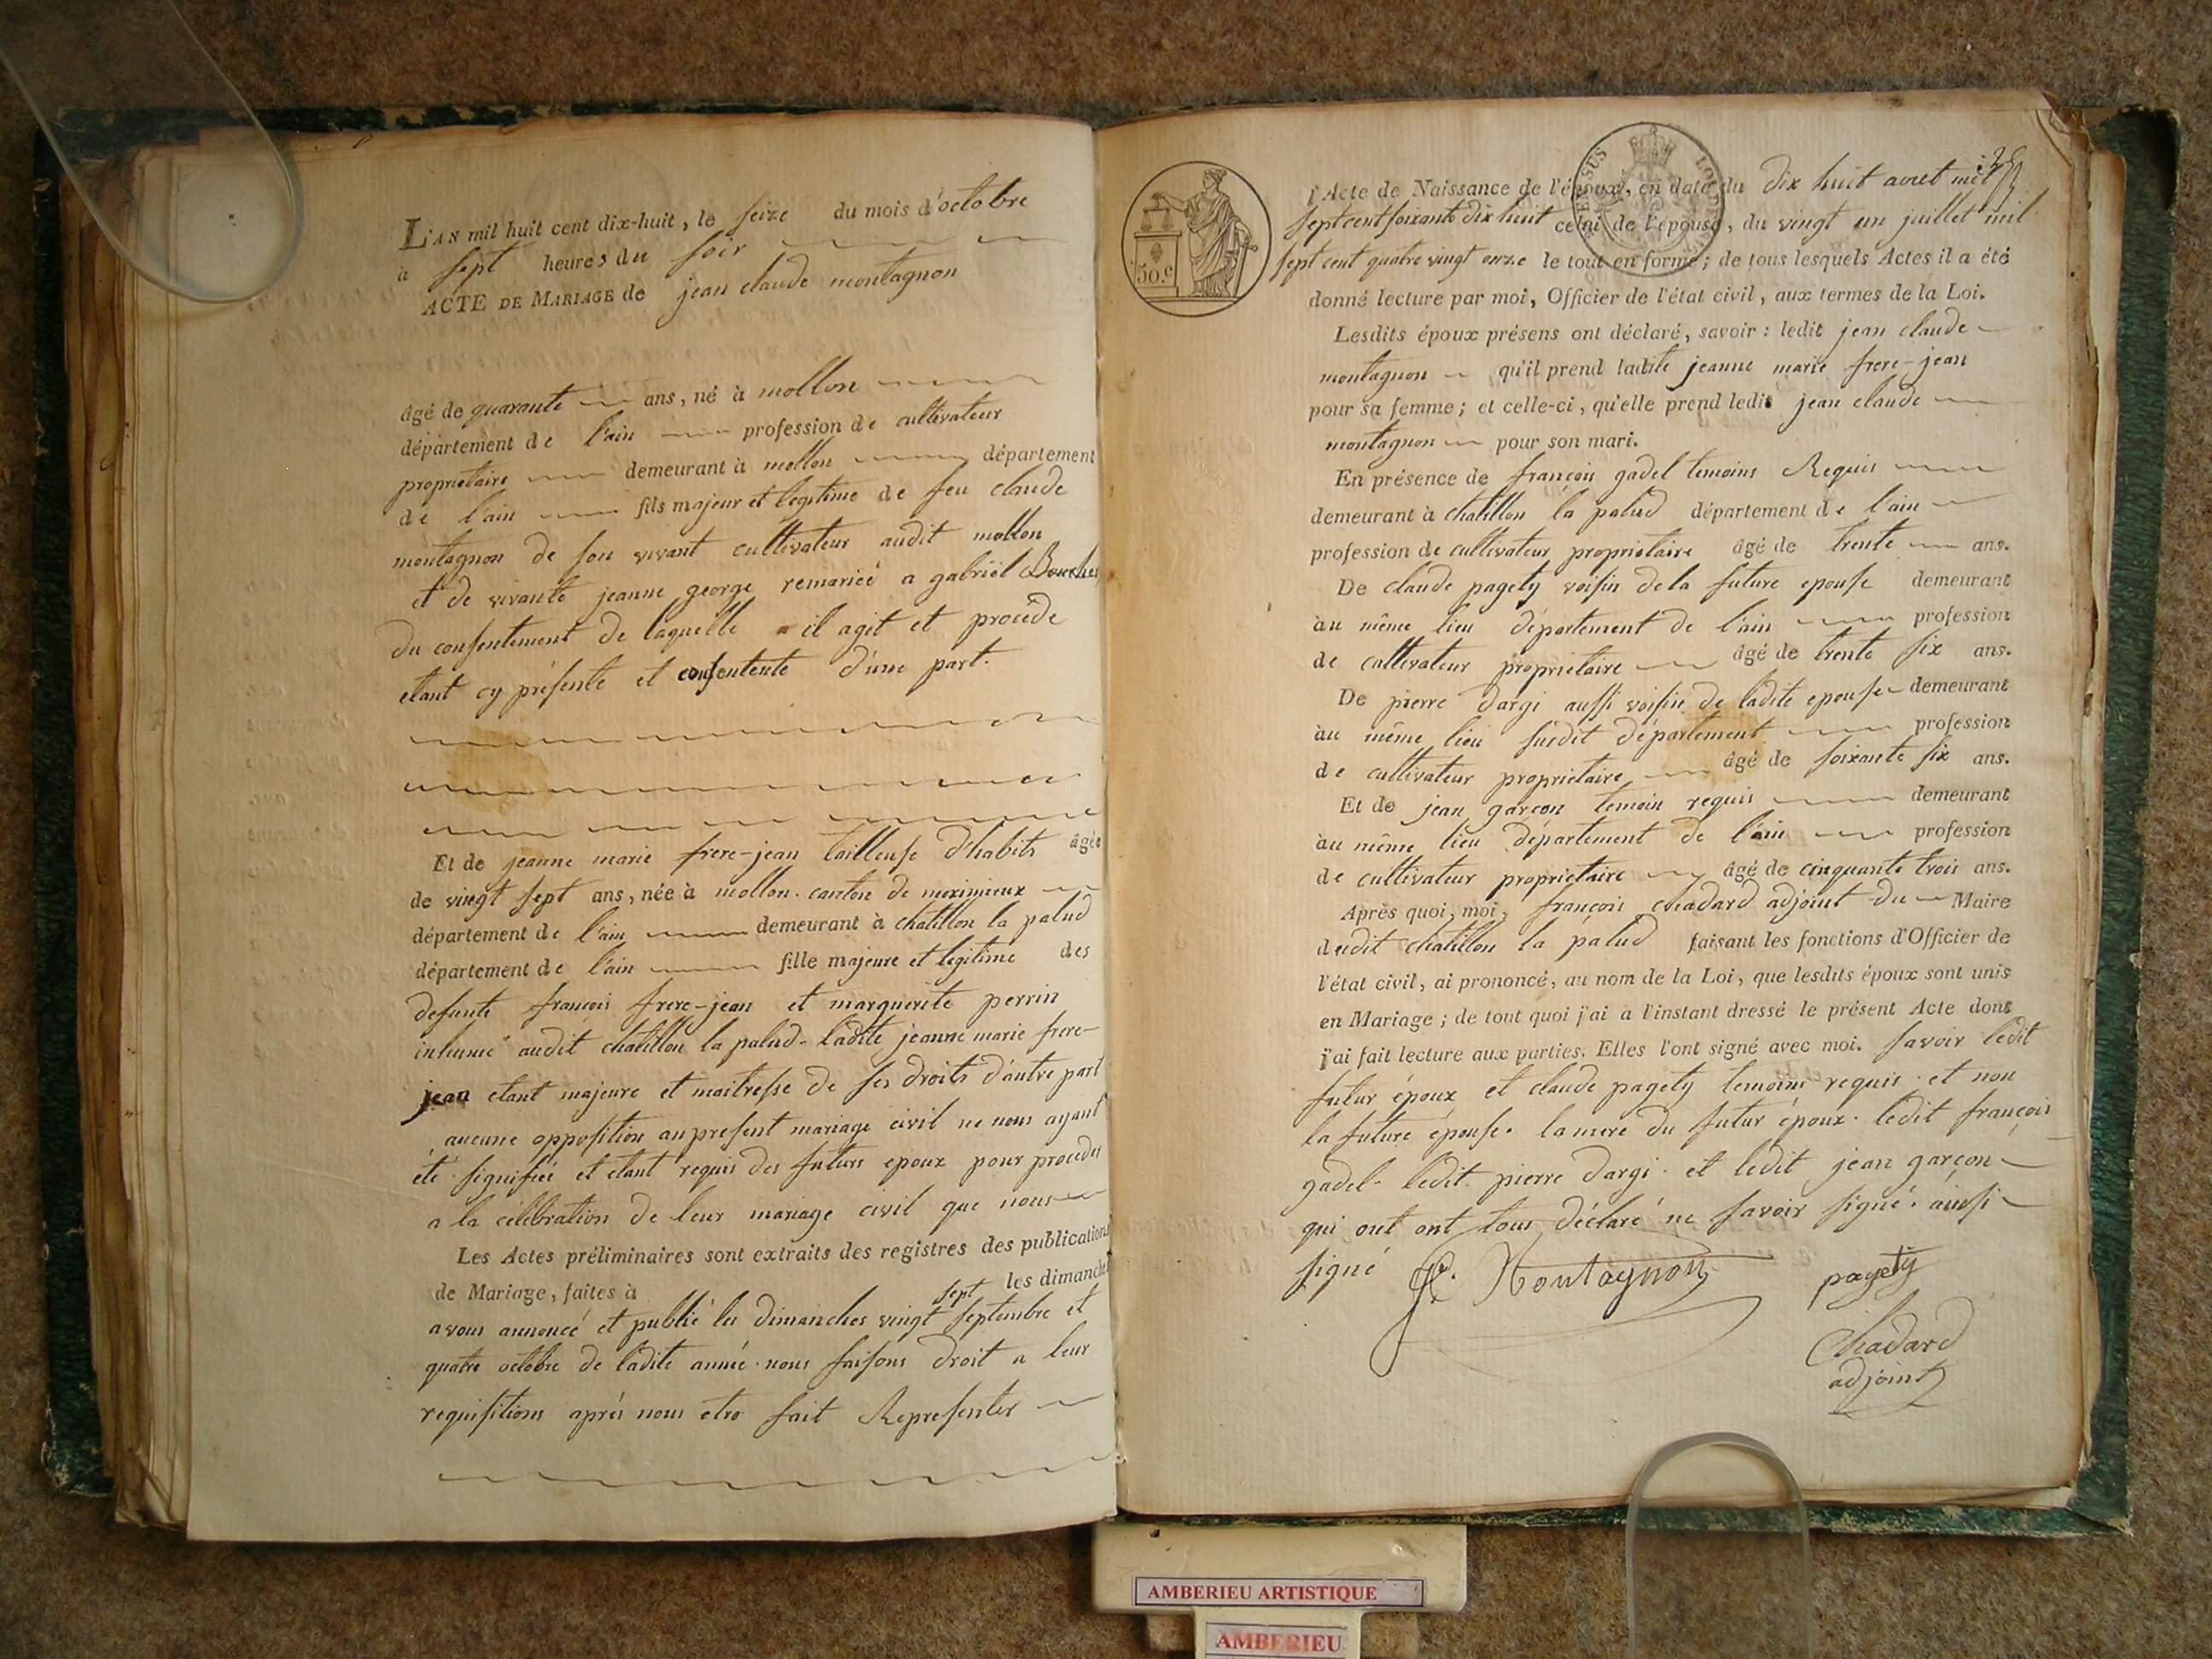 L'AN mil huit cent dix-huit, le seize du mois d'octobre
à sept heures du soir
ACTE DE MARIAGE de jean claude montagnon
âgé de quarante ans, né à mollon
département de l'ain profession de cultivateur
propriétaire demeurant à mollon département
de l'ain fils majeur et legitime de feu claude
montagnon de son vivant cultivateur audit mollon
et de vivante jeanne george remariée a gabriel
du consentement de laquelle il agit et procède
etant cy présente et consentente d'une part.
Et de jeanne marie frere-jean tailleuse d'habits âgée
de vingt sept ans, née à mollon. canton de meximieux
département de l'ain demeurant à chatillon la palud
département de l'ain fille majeure et legitime des
defunts françois frere-jean et marguerite perrin
inhumé audit chatillon la palud - ladite jeanne marie frere-
jean etant majeure et maitresse de ses droits d'autre part
aucune opposition au present mariage civil ne nous ayant
été signifiée et etant requis des futurs epoux pour proceder
a la célébration de leur mariage civil que nous
Les Actes préliminaires sont extraits des registres des publications
de Mariage, faites à les dimanches
sept
avons annoncé et publié les dimanches vingt septembre et
quatre octobre de ladite année. nous faisons droit a leur
requisitions après nous etre fait Representer
50.c
l'Acte de Naissance de l'époux, en date du dix huit avril mil
sept cent soixante dix huit celui de l'épouse, du vingt un juillet mil
sept cent quatre vingt onze le tout en forme; de tous lesquels Actes il a été
donné lecture par moi, Officier de l'état civil, aux termes de la Loi.
Lesdits époux présens ont déclaré, savoir: ledit jean claude
montagnon qu'il prend ladite jeanne marie frere-jean
pour sa femme; et celle-ci, qu'elle prend ledit jean claude
montagnon pour son mari.
En présence de françois gadel temoins Requis
demeurant à chatillon la palud département de l'ain
profession de cultivateur propriétaire âgé de trente ans.
De claude pagety voisin de la future epouse demeurant
au même lieu département de l'ain profession
de cultivateur propriétaire âgé de trente six ans.
De pierre dargi aussi voisin de ladite epouse demeurant
au même lieu susdit département profession
de cultivateur propriétaire âgé de soixante six ans.
Et de jean garçon temoin requis demeurant
au même lieu département de l'ain profession
de cultivateur propriétaire âgé de cinquante trois ans.
Après quoi, moi, françois chadard adjoint du Maire
dudit chatillon la palud faisant les fonctions d'Officier de
l'état civil, ai prononcé, au nom de la Loi, que lesdits époux sont unis
en Mariage; de tout quoi j'ai a l'instant dressé le présent Acte dont
j'ai fait lecture aux parties. Elles l'ont signé avec moi. savoir ledit
futur époux et claude pagety temoins requis. et non
la future épouse. la mere du futur époux. ledit françois
gadel - ledit pierre dargi. et ledit jean garçon
qui ont ont tous déclaré ne savoir signé. ainsi
signé Montagnon pagety
Chadard
adjoint
AMBERIEU ARTISTIQUE
AMBERIEU